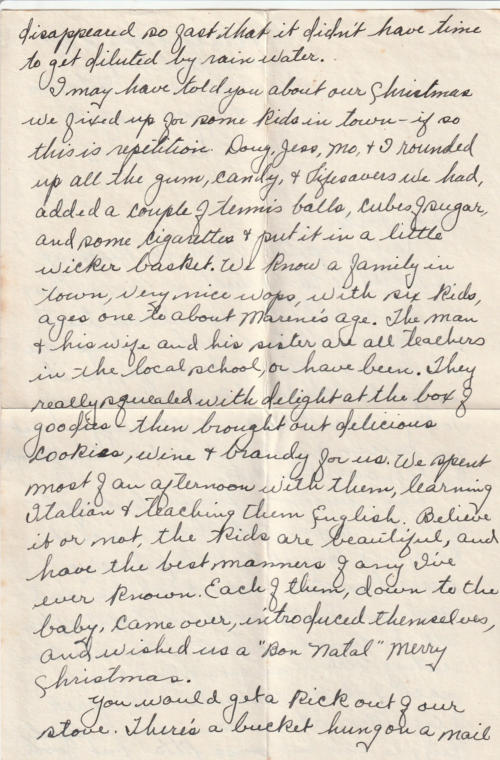 disappeared so fast that it didn't have time
to get diluted by rain water.
I may have told you about our Christmas
we fixed up for some kids in town - if so
this is repetition. Doug, Jess, Mo, & I rounded
up all the gum, candy, & lifesavers we had,
added a couple of tennis balls, cubes of sugar,
and some cigarettes & put it in a little
wicker basket. We know a family in
town, very nice wops, with six kids,
ages one to about Marene's age. The man
& his wife and his sister are all teachers
in the local school, or have been. They
really squealed with delight at the box of
goodies - then brought out delicious
cookies, wine & brandy for us. We spent
most of an afternoon with them, learning
Italian & teaching them English. Believe
it or not, the kids are beautiful, and
have the best manners of any I've
ever known. Each of them, down to the
baby, came over, introduced themselves,
and wished us a "Bon Natal" Merry
Christmas.
You would get a kick out of our
stove. There's a bucket hung on a nail